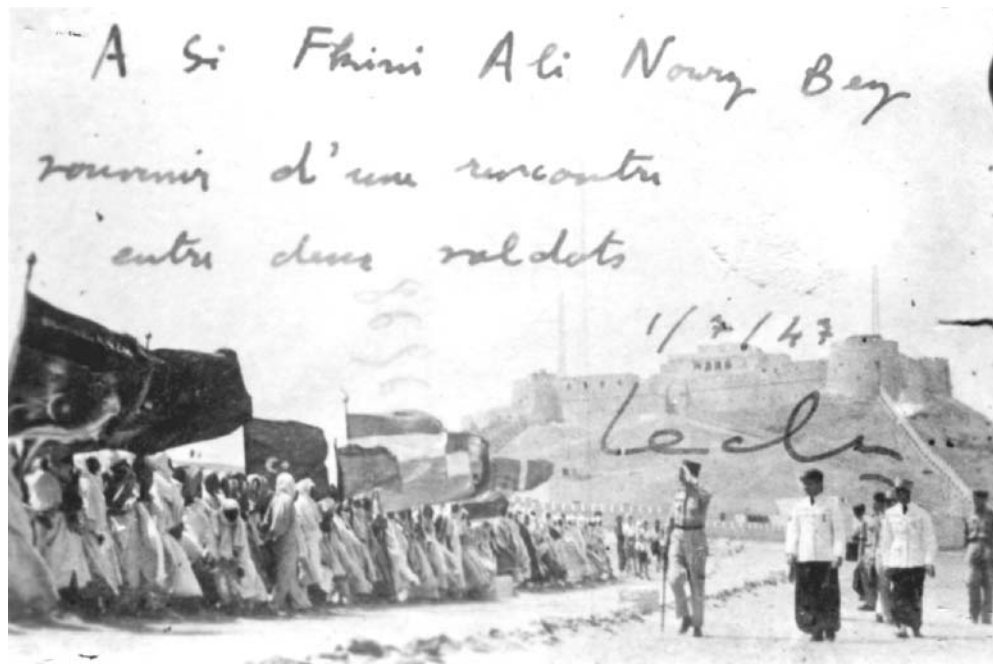 A Si Fkini Ali Noury Bey
souvenir d'une rencontre
entre deux soldats
1/7/47
Leclerc